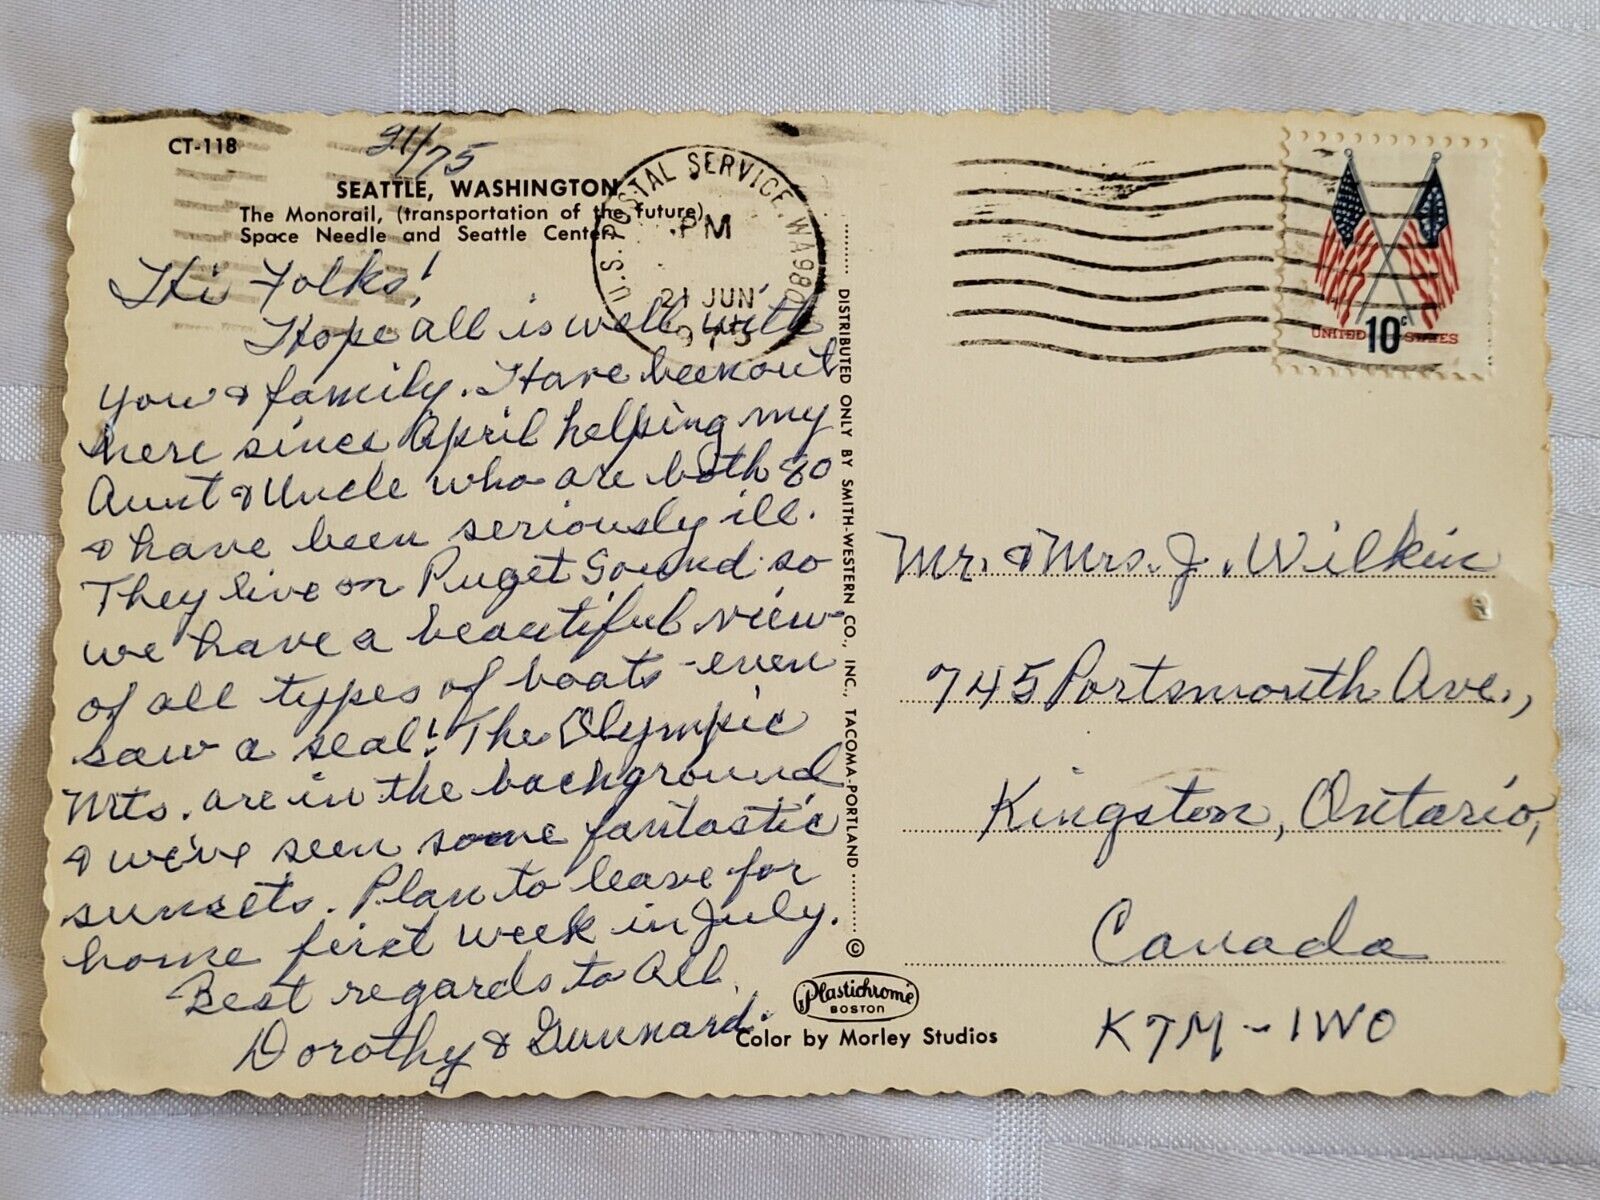 CT-118
21/75
SEATTLE, WASHINGTON
The Monorail, (transportation of the future),
Space Needle and Seattle Center.
Hi Folks!
Hope all is well with
you & family. Have been out
here since April helping my
Aunt & Uncle who are both 80
& have been seriously ill.
They live on Puget Sound so
we have a beautiful view
of all types of boats - even
saw a seal! The Olympic
Mts. are in the background
& we've seen some fantastic
sunsets. Plan to leave for
home first week in July.
Best regards to All,
Dorothy & Gunnard.
DISTRIBUTED ONLY BY SMITH-WESTERN CO., INC., TACOMA-PORTLAND
©
Plastichrome
BOSTON
Color by Morley Studios
U.S. POSTAL SERVICE, WA 980
PM
21 JUN
1975
UNITED 10c STATES
Mr. & Mrs. J. Wilkin
745 Portsmouth Ave.,
Kingston, Ontario,
Canada
K7M-1W0